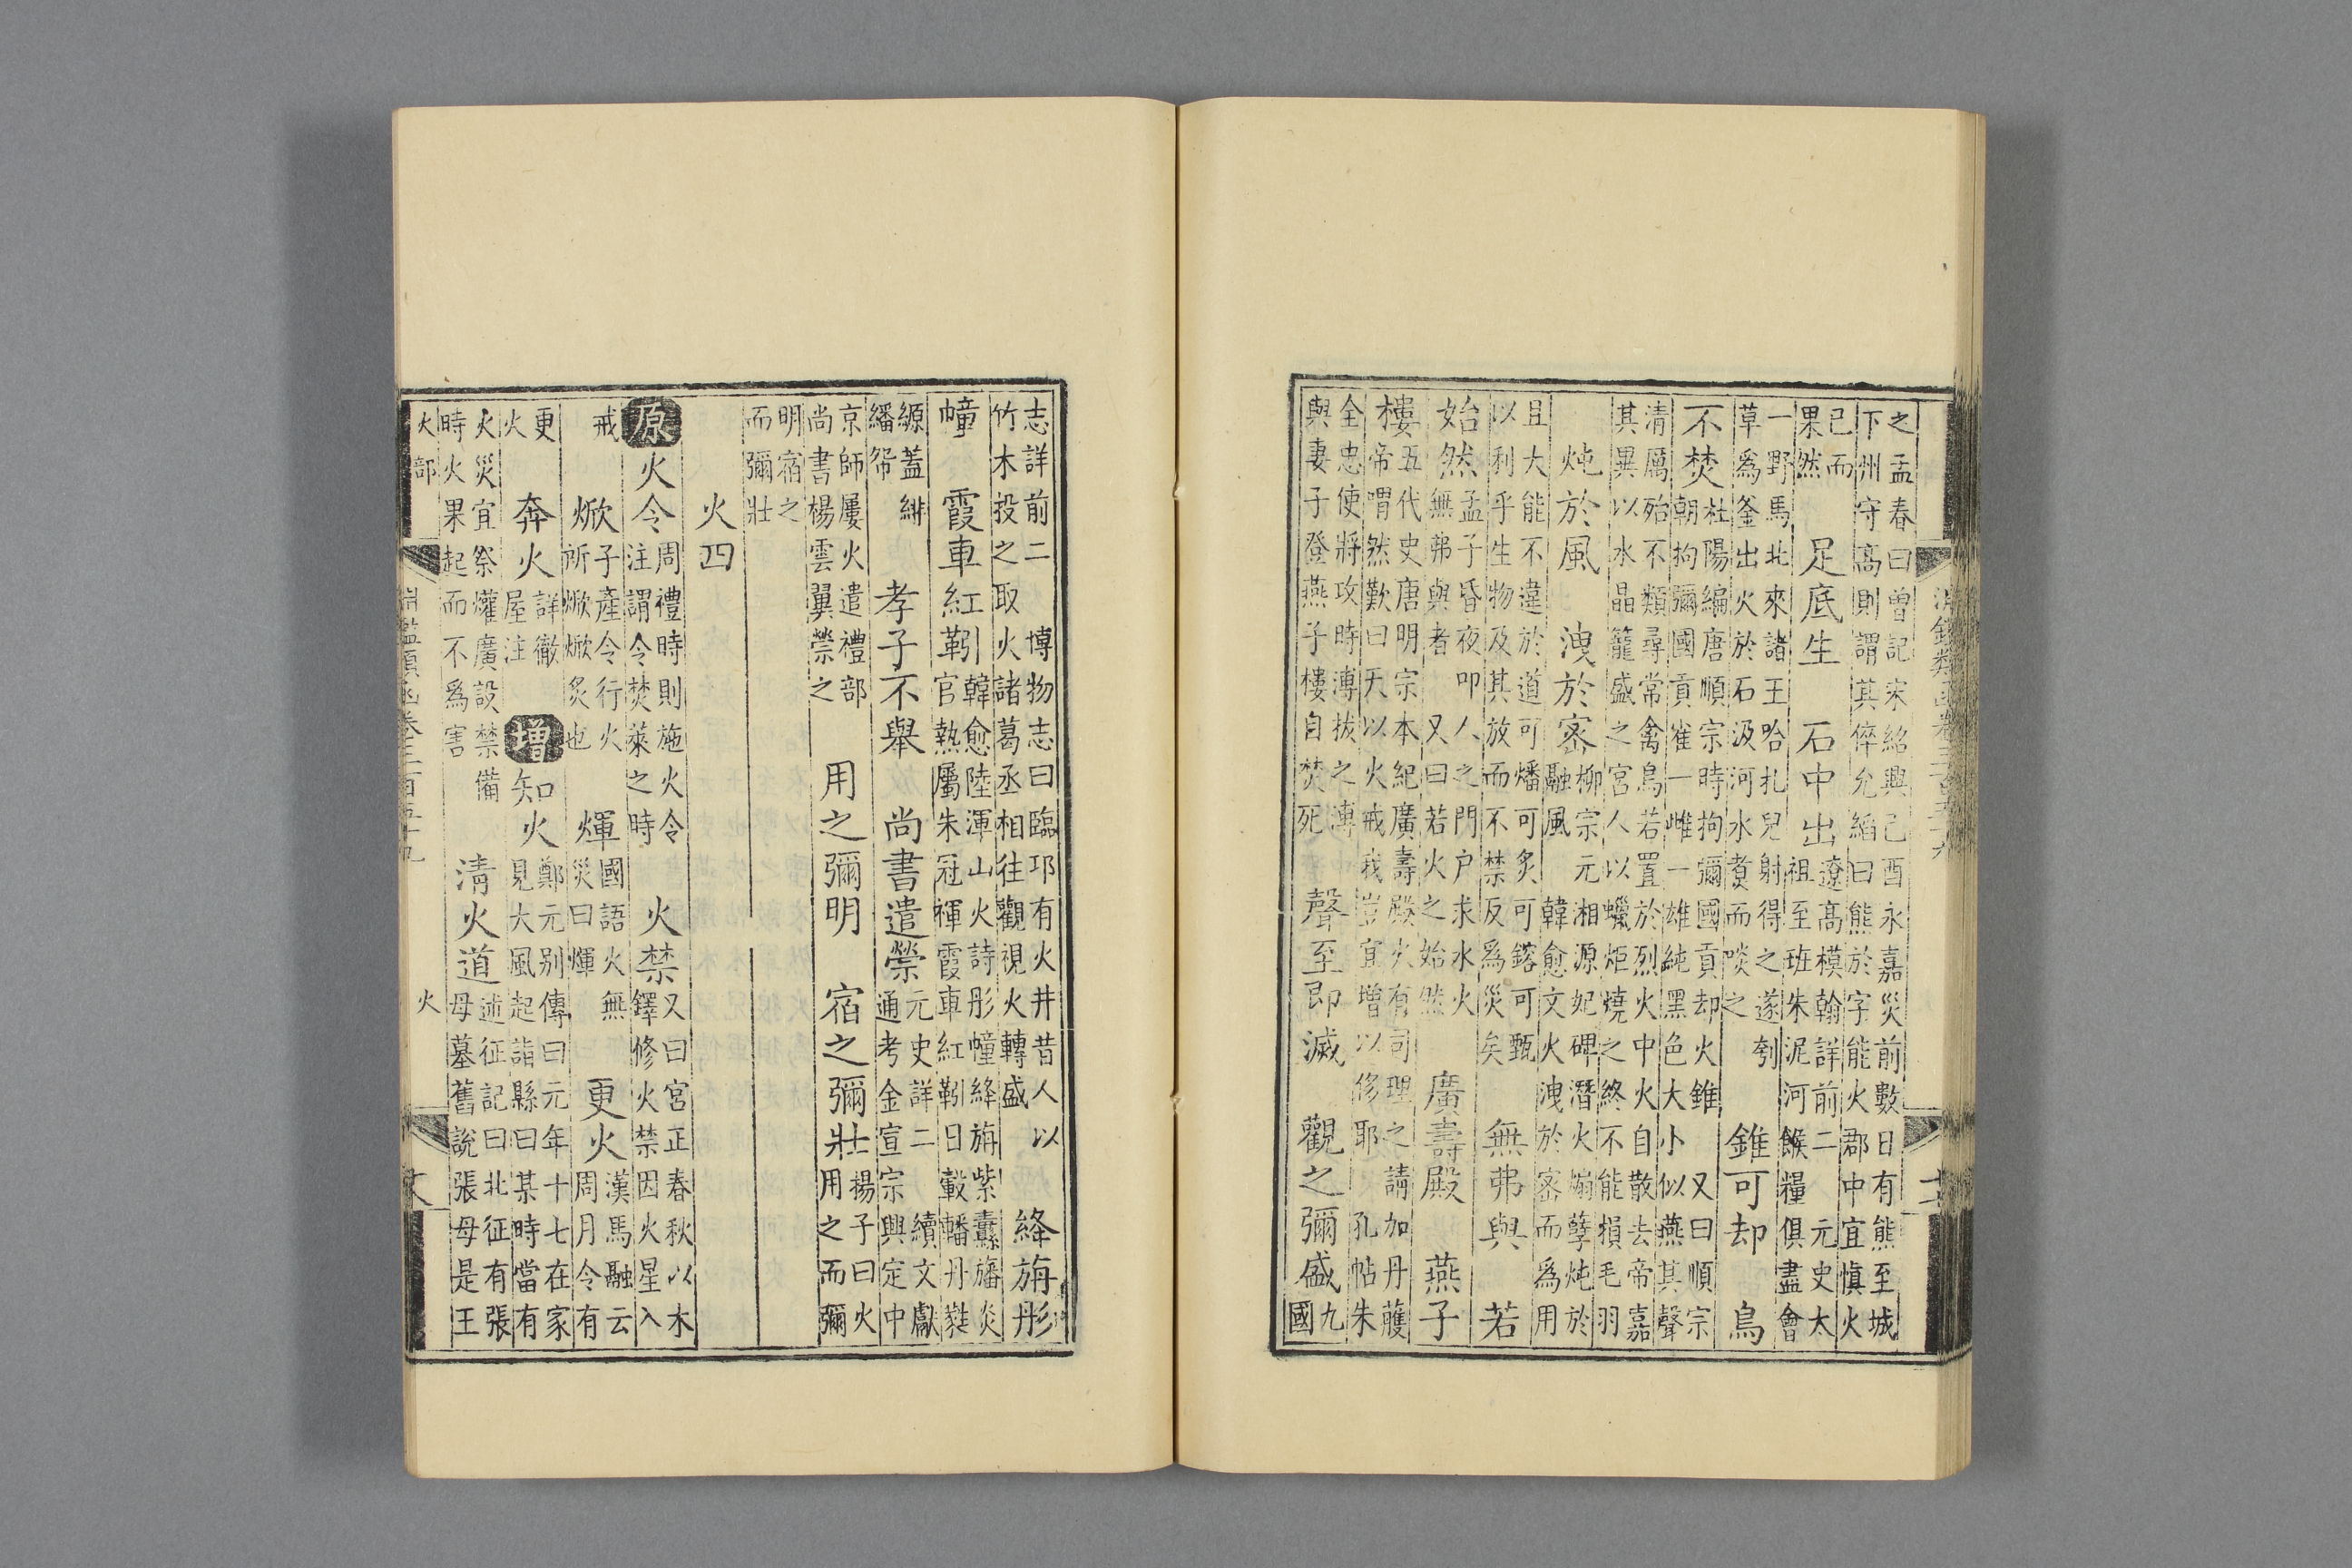 之孟春曰曾記宋紹興己酉永嘉災前數日有熊至城
下州守高則謂其倅允縚曰熊於字能火郡中宜慎火
已而
果然
足底生 石中出
遼高模翰詳前二 元史太
祖至班朱泥河餱糧俱盡會
一野馬北來諸王哈扎兒射得之遂刳
草為釜出火於石汲河水煮而啖之
錐可却 鳥
不焚
杜陽編唐順宗時拘彌國貢却火錐 又曰順宗
朝拘彌國貢雀一雌一雄純黑色大小似燕其聲
清厲殆不類尋常禽鳥若置於烈火中火自散去帝嘉
其異以水晶籠盛之宮人以蠟炬燒之終不能損毛羽
炖於風 洩於密
柳宗元湘源妃碑潛火煽孽炖於
融風 韓愈文火洩於密而為用
且大能不違於道可燔可炙可鎔可甄
以利乎生物及其放而不禁反為災矣
無弗與 若
始然
孟子昏夜叩人之門户求水火
無弗與者 又曰若火之始然
廣壽殿 燕子
樓
五代史唐明宗本紀廣壽殿火有司理之請加丹雘
帝喟然歎曰天以火戒我豈宜增以侈耶 孔帖朱
全忠使將攻時溥拔之溥
與妻子登燕子樓自焚死
聲至即滅 觀之彌盛
九
國
志詳前二 博物志曰臨邛有火井昔人以
竹木投之取火諸葛丞相往觀視火轉盛
絳旃彤
幢 霞車紅靷
韓愈陸渾山火詩彤幢絳旃紫纛旛炎
官熱屬朱冠褌霞車紅靷日轂轓丹蕤
縓蓋緋
繙帤
孝子不舉 尚書遣禜
元史詳二 續文獻
通考金宣宗興定中
京師屢火遣禮部
尚書楊雲翼禜之
用之彌明 宿之彌壯
揚子曰火
用之而彌
明宿之
而彌壯
火四
原 火令
周禮時則施火令
注謂令焚萊之時
火禁
又曰宮正春秋以木
鐸修火禁因火星入
戒
焮
子產令行火
所焮焮炙也
煇
國語火無
災曰煇
更火
漢馬融云
周月令有
更
火
奔火
詳徹
屋注
增 知火
鄭元别傳曰元年十七在家
見大風起詣縣曰某時當有
火災宜祭爟廣設禁備
時火果起而不為害
清火道
述征記曰北征有張
母墓舊說張母是王
火部
淵鑑類函卷三百五十九
火